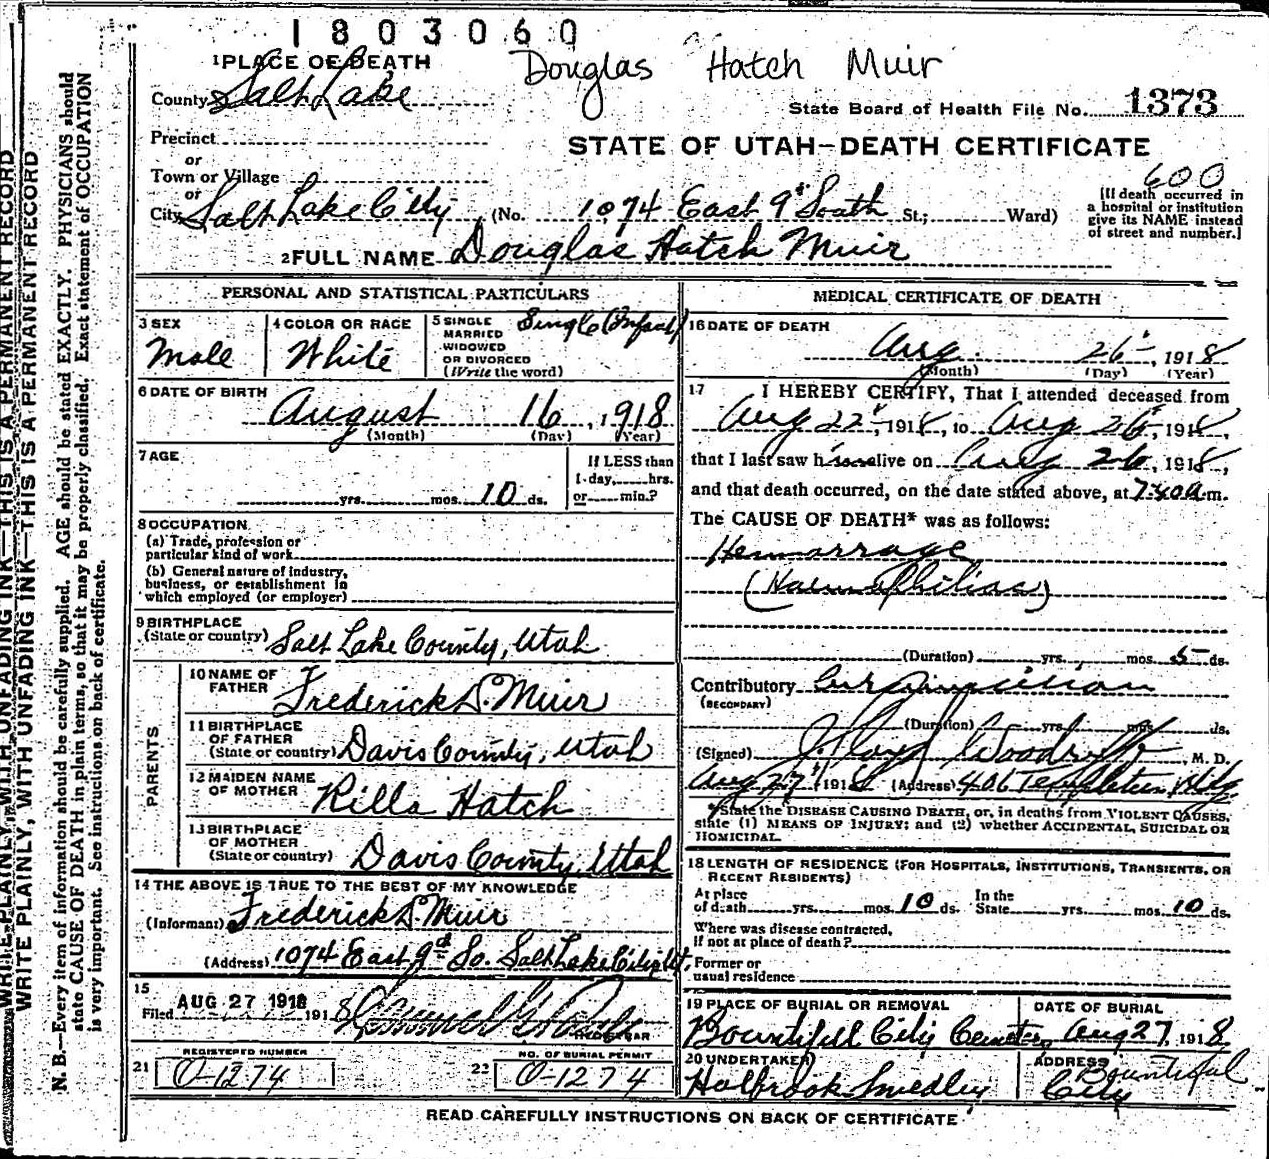 1803060
Douglas Hatch Muir
1 PLACE OF DEATH
County Salt Lake
State Board of Health File No. 1373
Precinct
STATE OF UTAH—DEATH CERTIFICATE
or
Town or Village
600
or
City Salt Lake City (No. 1074 East 9th South St.; Ward)
[If death occurred in
a hospital or institution
give its NAME instead
of street and number.]
2 FULL NAME Douglas Hatch Muir
PERSONAL AND STATISTICAL PARTICULARS
3 SEX
Male
4 COLOR OR RACE
White
5 SINGLE
MARRIED
WIDOWED
OR DIVORCED
(Write the word)
Single (Infant)
6 DATE OF BIRTH
August 16, 1918
(Month) (Day) (Year)
7 AGE
yrs. mos. 10 ds.
If LESS than
1 day, hrs.
or min.?
8 OCCUPATION
(a) Trade, profession or
particular kind of work
(b) General nature of industry,
business, or establishment in
which employed (or employer)
9 BIRTHPLACE
(State or country) Salt Lake County, Utah
PARENTS
10 NAME OF
FATHER Frederick D. Muir
11 BIRTHPLACE
OF FATHER
(State or country) Davis County, Utah
12 MAIDEN NAME
OF MOTHER Rilla Hatch
13 BIRTHPLACE
OF MOTHER
(State or country) Davis County, Utah
14 THE ABOVE IS TRUE TO THE BEST OF MY KNOWLEDGE
(Informant) Frederick D. Muir
(Address) 1074 East 9th So. Salt Lake City Ut.
15
Filed AUG 27 1918 191 8
REGISTRAR
REGISTERED NUMBER
21 O-1274
NO. OF BURIAL PERMIT
22 O-1274
MEDICAL CERTIFICATE OF DEATH
16 DATE OF DEATH
Aug. 26, 1918
(Month) (Day) (Year)
17 I HEREBY CERTIFY, That I attended deceased from
Aug 22, 1918, to Aug 26, 1918,
that I last saw h alive on Aug 26, 1918,
and that death occurred, on the date stated above, at 7:40 a.m.
The CAUSE OF DEATH* was as follows:
Hemorrage
(Haemophiliac)
(Duration) yrs. mos. 5 ds.
Contributory Circumcision
(SECONDARY)
(Duration) yrs. mos. ds.
(Signed) J. Lloyd Woodruff, M. D.
Aug 27, 1918 (Address) 406 Templeton Bldg.
*State the DISEASE CAUSING DEATH, or, in deaths from VIOLENT CAUSES,
state (1) MEANS OF INJURY; and (2) whether ACCIDENTAL, SUICIDAL OR
HOMICIDAL.
18 LENGTH OF RESIDENCE (FOR HOSPITALS, INSTITUTIONS, TRANSIENTS, OR
RECENT RESIDENTS)
At place
of death yrs. mos. 10 ds.
In the
State yrs. mos. 10 ds.
Where was disease contracted,
if not at place of death?
Former or
usual residence
19 PLACE OF BURIAL OR REMOVAL
Bountifull City Cemetery
DATE OF BURIAL
Aug 27, 1918
20 UNDERTAKER
Holbrook Smedley
ADDRESS
Bountiful
City
READ CAREFULLY INSTRUCTIONS ON BACK OF CERTIFICATE
WRITE PLAINLY, WITH UNFADING INK—THIS IS A PERMANENT RECORD
WRITE PLAINLY, WITH UNFADING INK—THIS IS A PERMANENT RECORD
N. B.—Every item of information should be carefully supplied. AGE should be stated EXACTLY. PHYSICIANS should
state CAUSE OF DEATH in plain terms, so that it may be properly classified. Exact statement of OCCUPATION
is very important. See instructions on back of certificate.